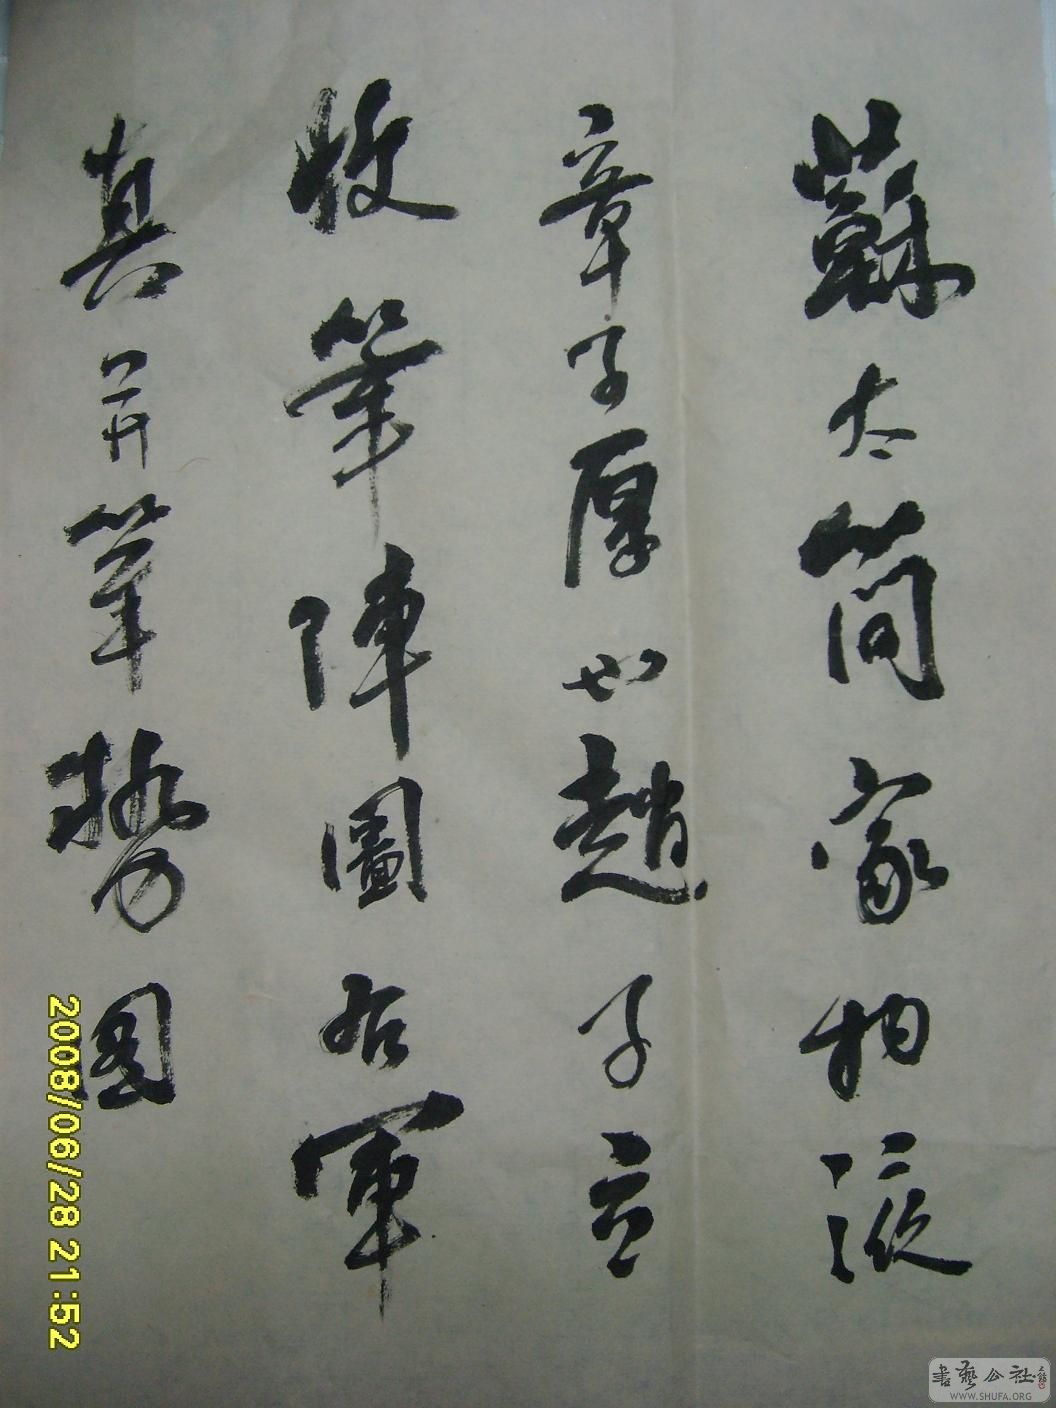 蘇太简家物液
章子厚也趙子立
收筆陣圖右軍
真并筆势图
2008/06/28 21:52
書藝公社
WWW.SHUFA.ORG